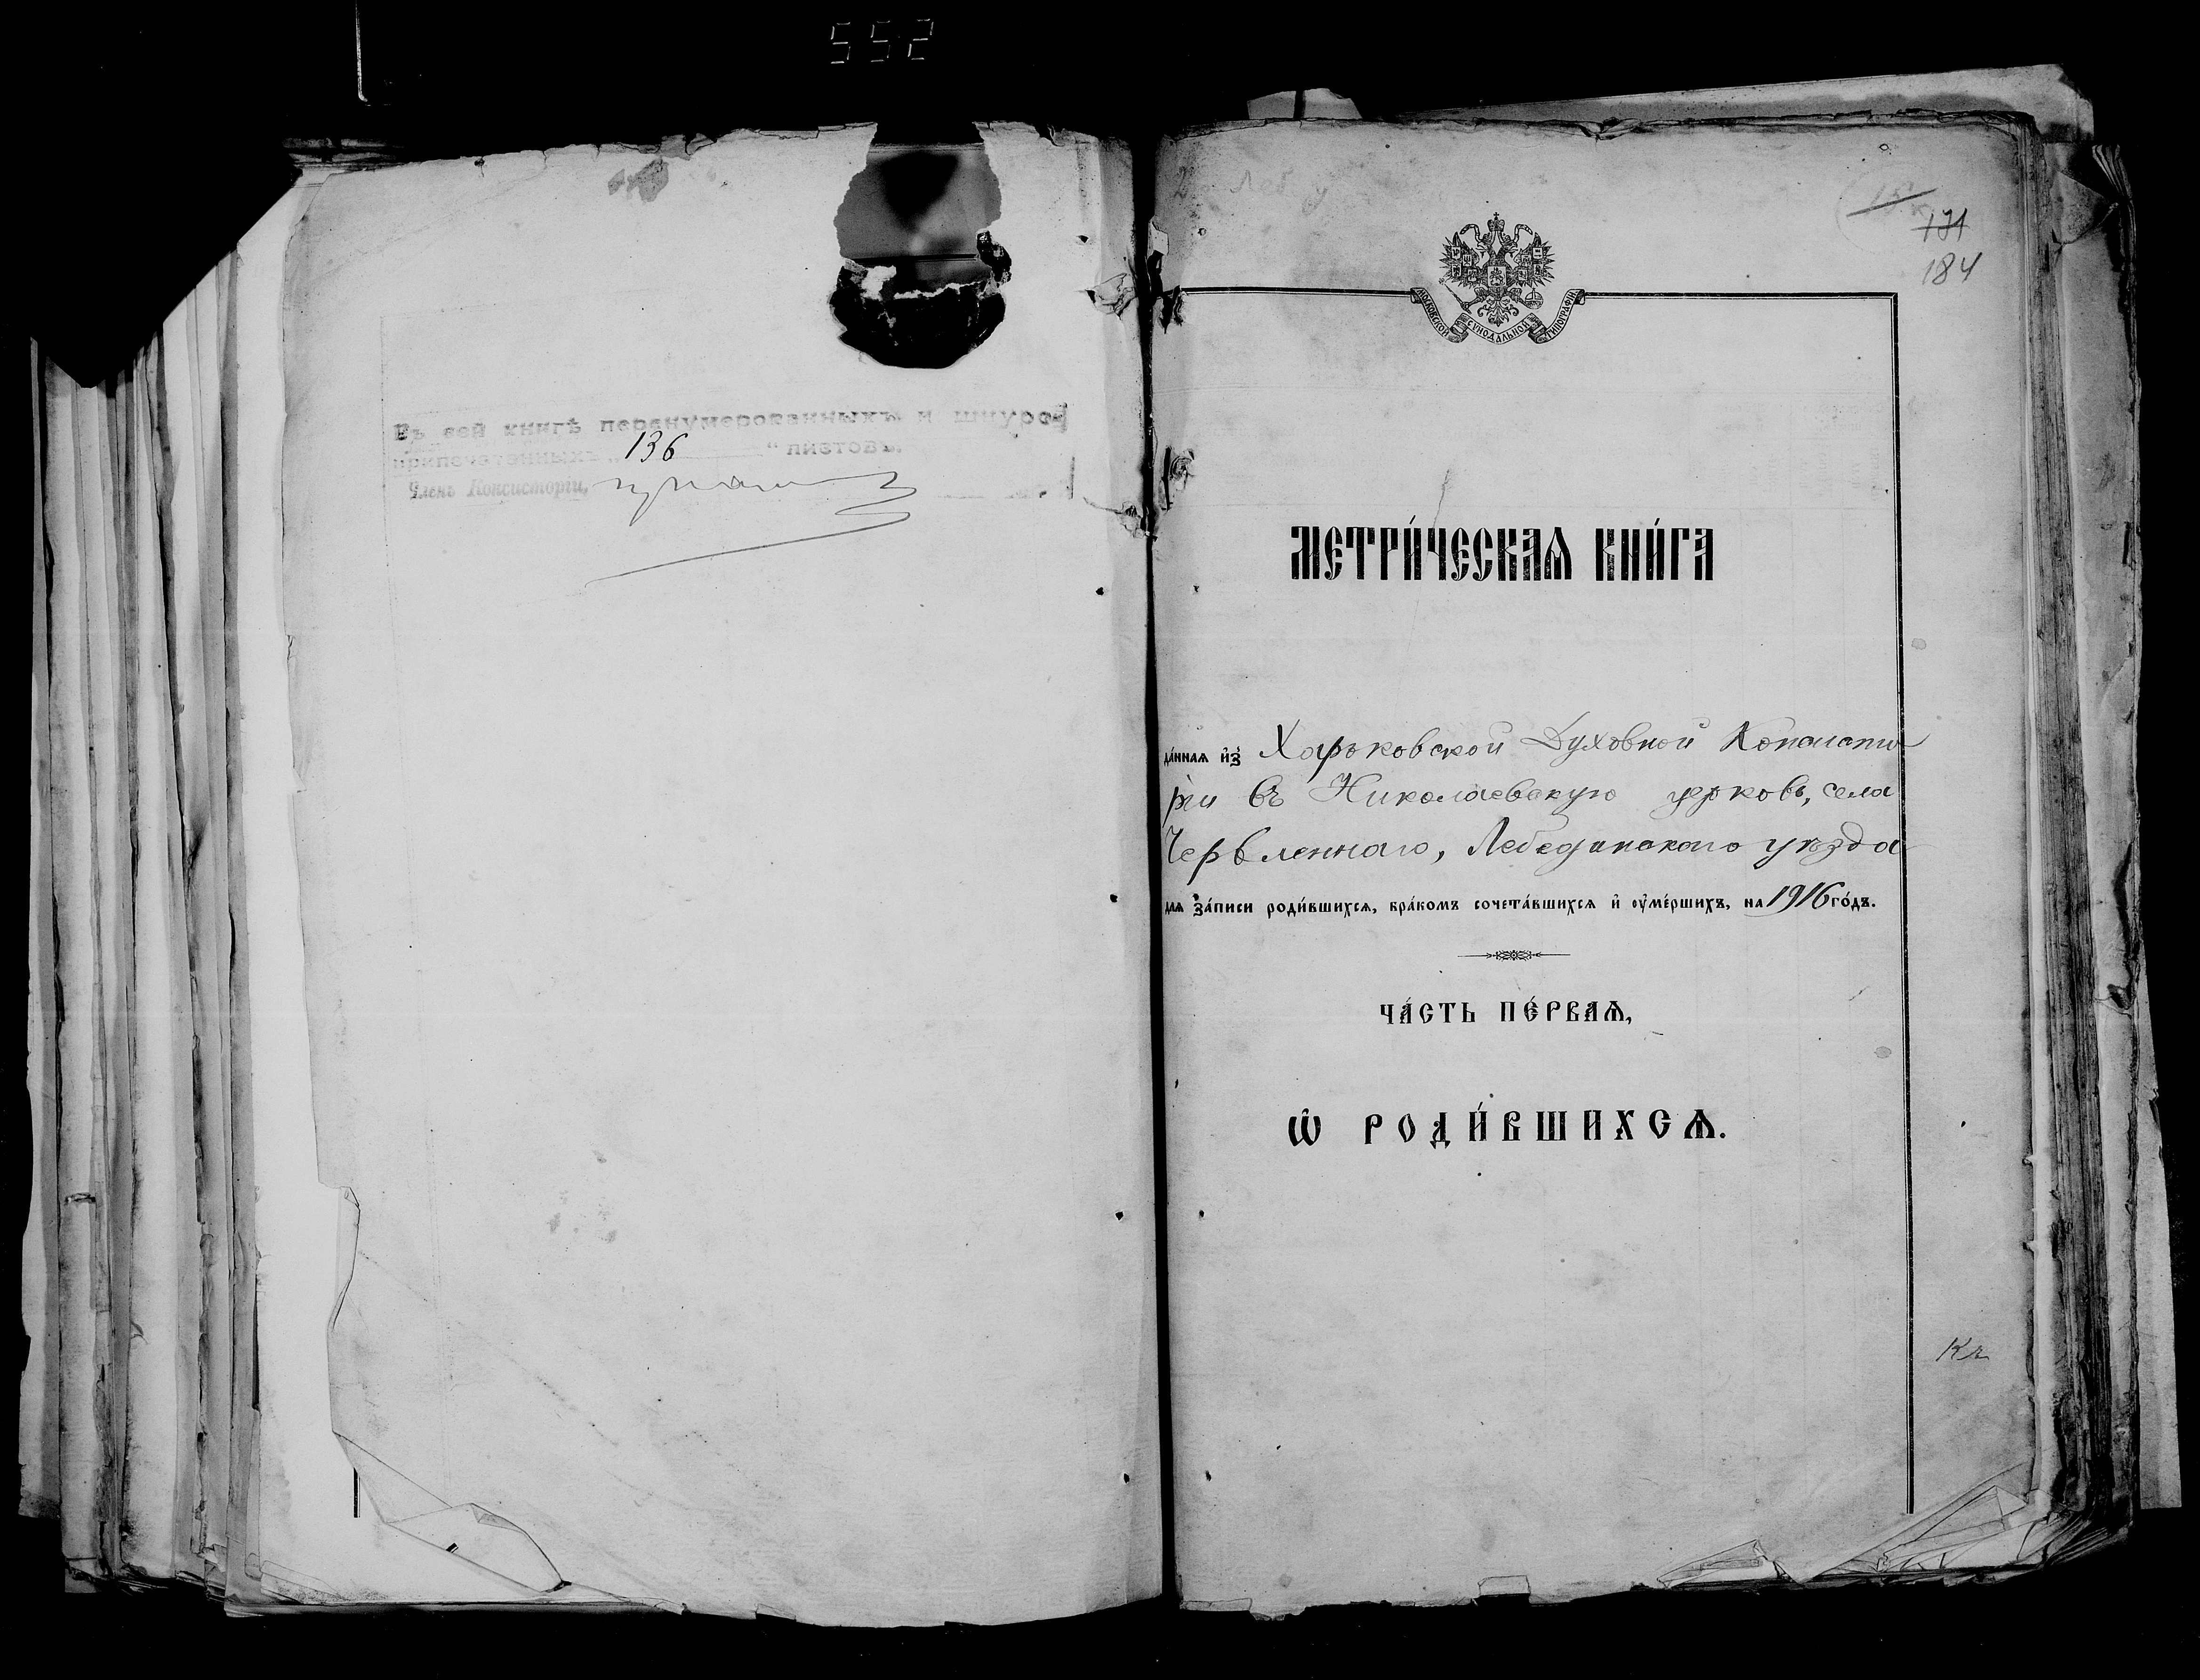 552
Въ сей книгѣ перенумерованныхъ и шнуро-
припечатанныхъ „ 136 “ листовъ.
Членъ Консисторіи,
2
Леб у
15
131
184
МОСКОВСКОЙ СѴНОДАЛЬНОЙ ТИПОГРАФІИ
МЕТРИ́ЧЕСКАѦ КНИ́ГА
да́ннаѧ и҆з̾ Харьковской Духовной Консисто
ріи въ Николаевскую церковь, села
Червленнаго, Лебединскаго уѣзда
длѧ за́писи роди́вшихсѧ, бра́комъ сочета́вшихсѧ и҆ ᲂу҆ме́ршихъ, на 1916 го́дъ.
ЧА́СТЬ ПЕ́РВАѦ,
Ѽ РОДИ́ВШИХСѦ.
Кг